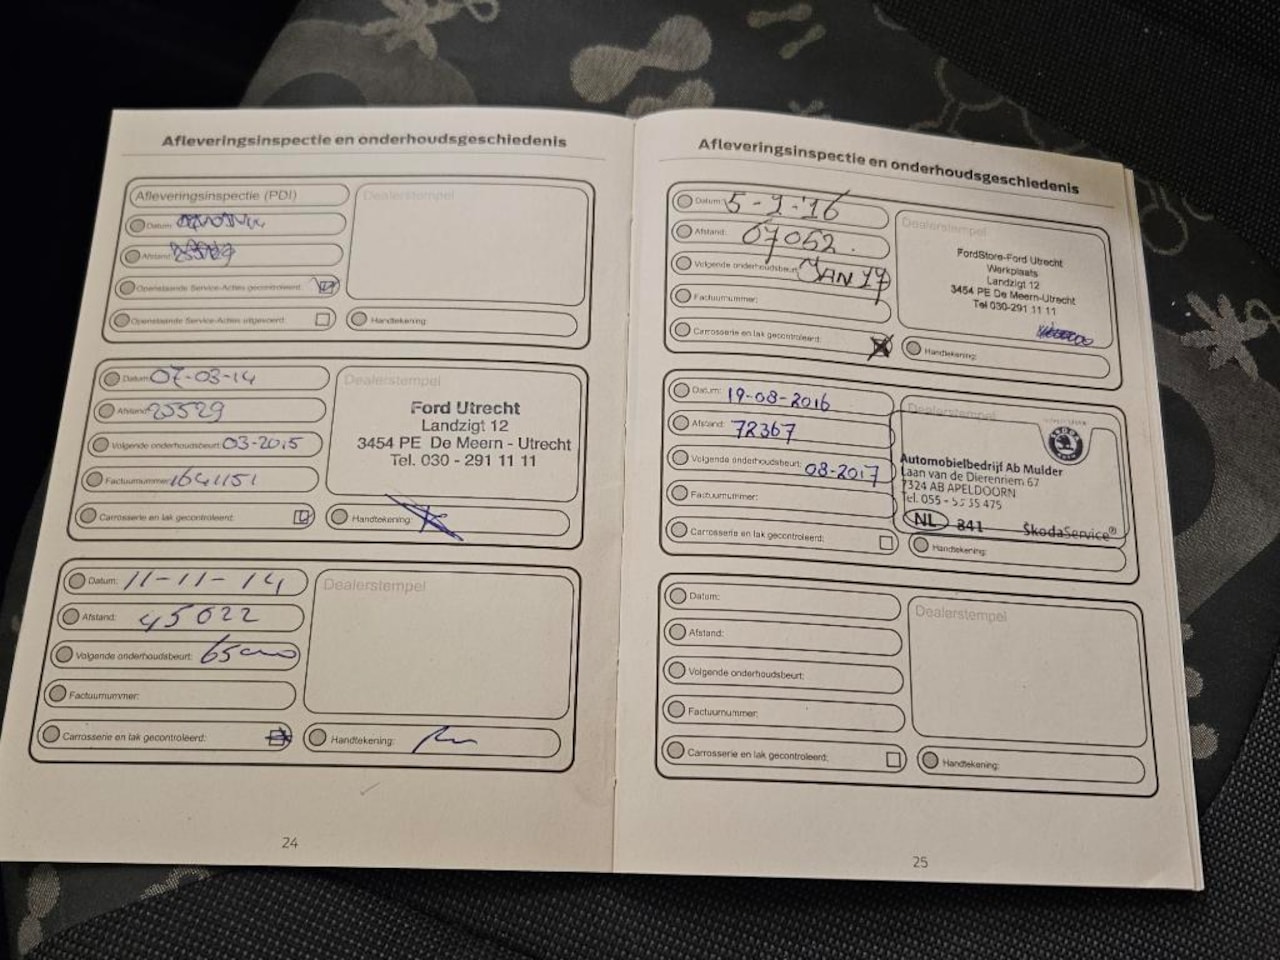 Afleveringsinspectie en onderhoudsgeschiedenis
Afleveringsinspectie (PDI)
Datum:
Afstand:
Openstaande Service-Acties gecontroleerd:
Openstaande Service-Acties uitgevoerd:
Dealerstempel
Handtekening:
Datum: 07-03-14
Afstand: 25529
Volgende onderhoudsbeurt: 03-2015
Factuurnummer: 1641151
Carrosserie en lak gecontroleerd:
Dealerstempel
Ford Utrecht
Landzigt 12
3454 PE De Meern - Utrecht
Tel. 030 - 291 11 11
Handtekening:
Datum: 11-11-14
Afstand: 45022
Volgende onderhoudsbeurt:
Factuurnummer:
Carrosserie en lak gecontroleerd:
Dealerstempel
Handtekening:
24
Afleveringsinspectie en onderhoudsgeschiedenis
Datum: 5-1-'16
Afstand: 67052.
Volgende onderhoudsbeurt: JAN 17
Factuurnummer:
Carrosserie en lak gecontroleerd:
Dealerstempel
FordStore-Ford Utrecht
Werkplaats
Landzigt 12
3454 PE De Meern-Utrecht
Tel 030-291 11 11
Handtekening:
Datum: 19-08-2016
Afstand: 72367
Volgende onderhoudsbeurt: 08-2017
Factuurnummer:
Carrosserie en lak gecontroleerd:
Dealerstempel
Automobielbedrijf Ab Mulder
Laan van de Dierenriem 67
7324 AB APELDOORN
Tel. 055 - 5335 475
NL 841 ŠkodaService®
Handtekening:
Datum:
Afstand:
Volgende onderhoudsbeurt:
Factuurnummer:
Carrosserie en lak gecontroleerd:
Dealerstempel
Handtekening:
25